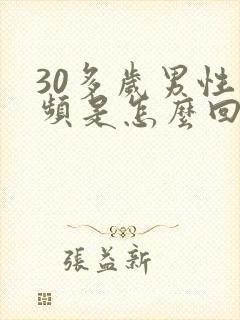 30多歲男性
頻是怎麼回
張益新